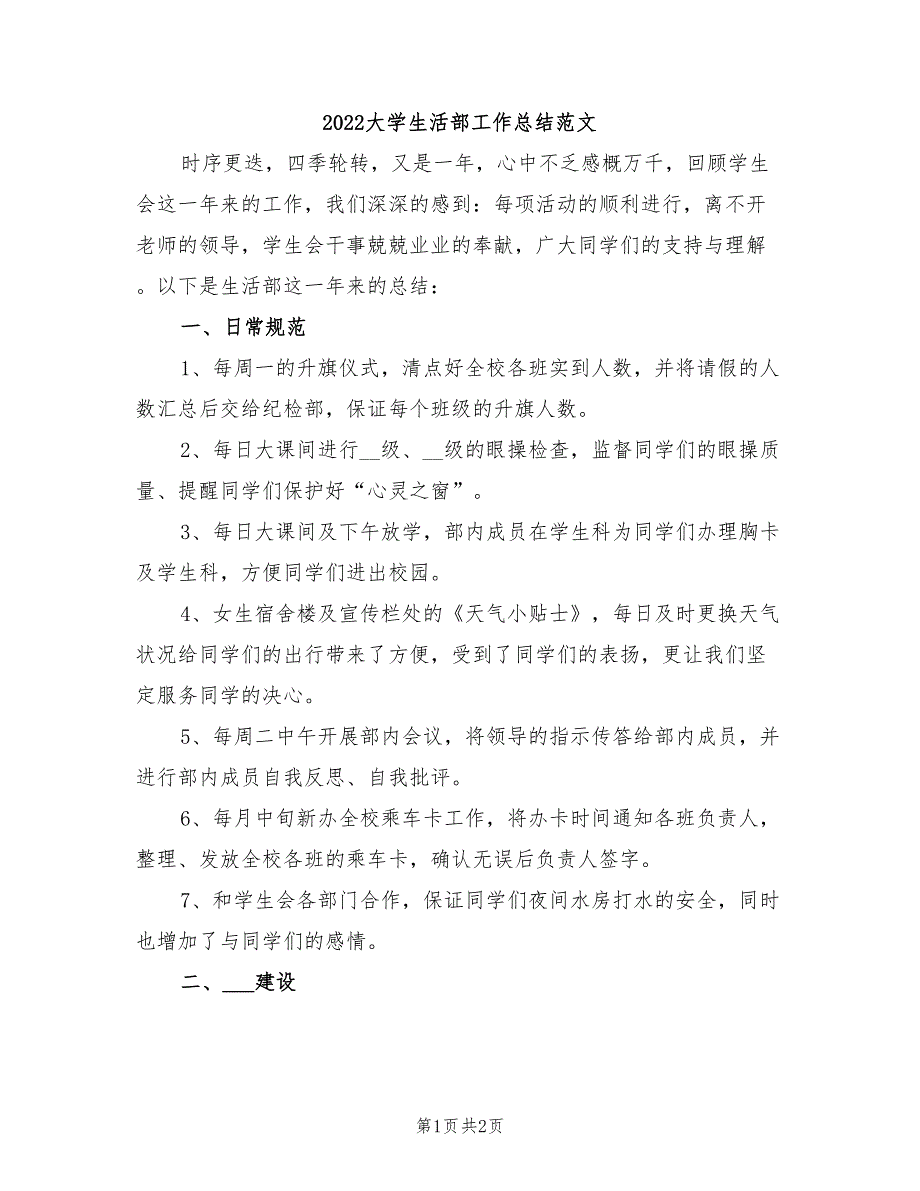 2022大学生活部工作总结范文
时序更迭，四季轮转，又是一年，心中不乏感概万千，回顾学生
会这一年来的工作，我们深深的感到：每项活动的顺利进行，离不开
老师的领导，学生会干事兢兢业业的奉献，广大同学们的支持与理解
。以下是生活部这一年来的总结：
一、日常规范
1、每周一的升旗仪式，清点好全校各班实到人数，并将请假的人
数汇总后交给纪检部，保证每个班级的升旗人数。
2、每日大课间进行__级、__级的眼操检查，监督同学们的眼操质
量、提醒同学们保护好“心灵之窗”。
3、每日大课间及下午放学，部内成员在学生科为同学们办理胸卡
及学生科，方便同学们进出校园。
4、女生宿舍楼及宣传栏处的《天气小贴士》，每日及时更换天气
状况给同学们的出行带来了方便，受到了同学们的表扬，更让我们坚
定服务同学的决心。
5、每周二中午开展部内会议，将领导的指示传答给部内成员，并
进行部内成员自我反思、自我批评。
6、每月中旬新办全校乘车卡工作，将办卡时间通知各班负责人，
整理、发放全校各班的乘车卡，确认无误后负责人签字。
7、和学生会各部门合作，保证同学们夜间水房打水的安全，同时
也增加了与同学们的感情。
二、___建设
第1页共2页